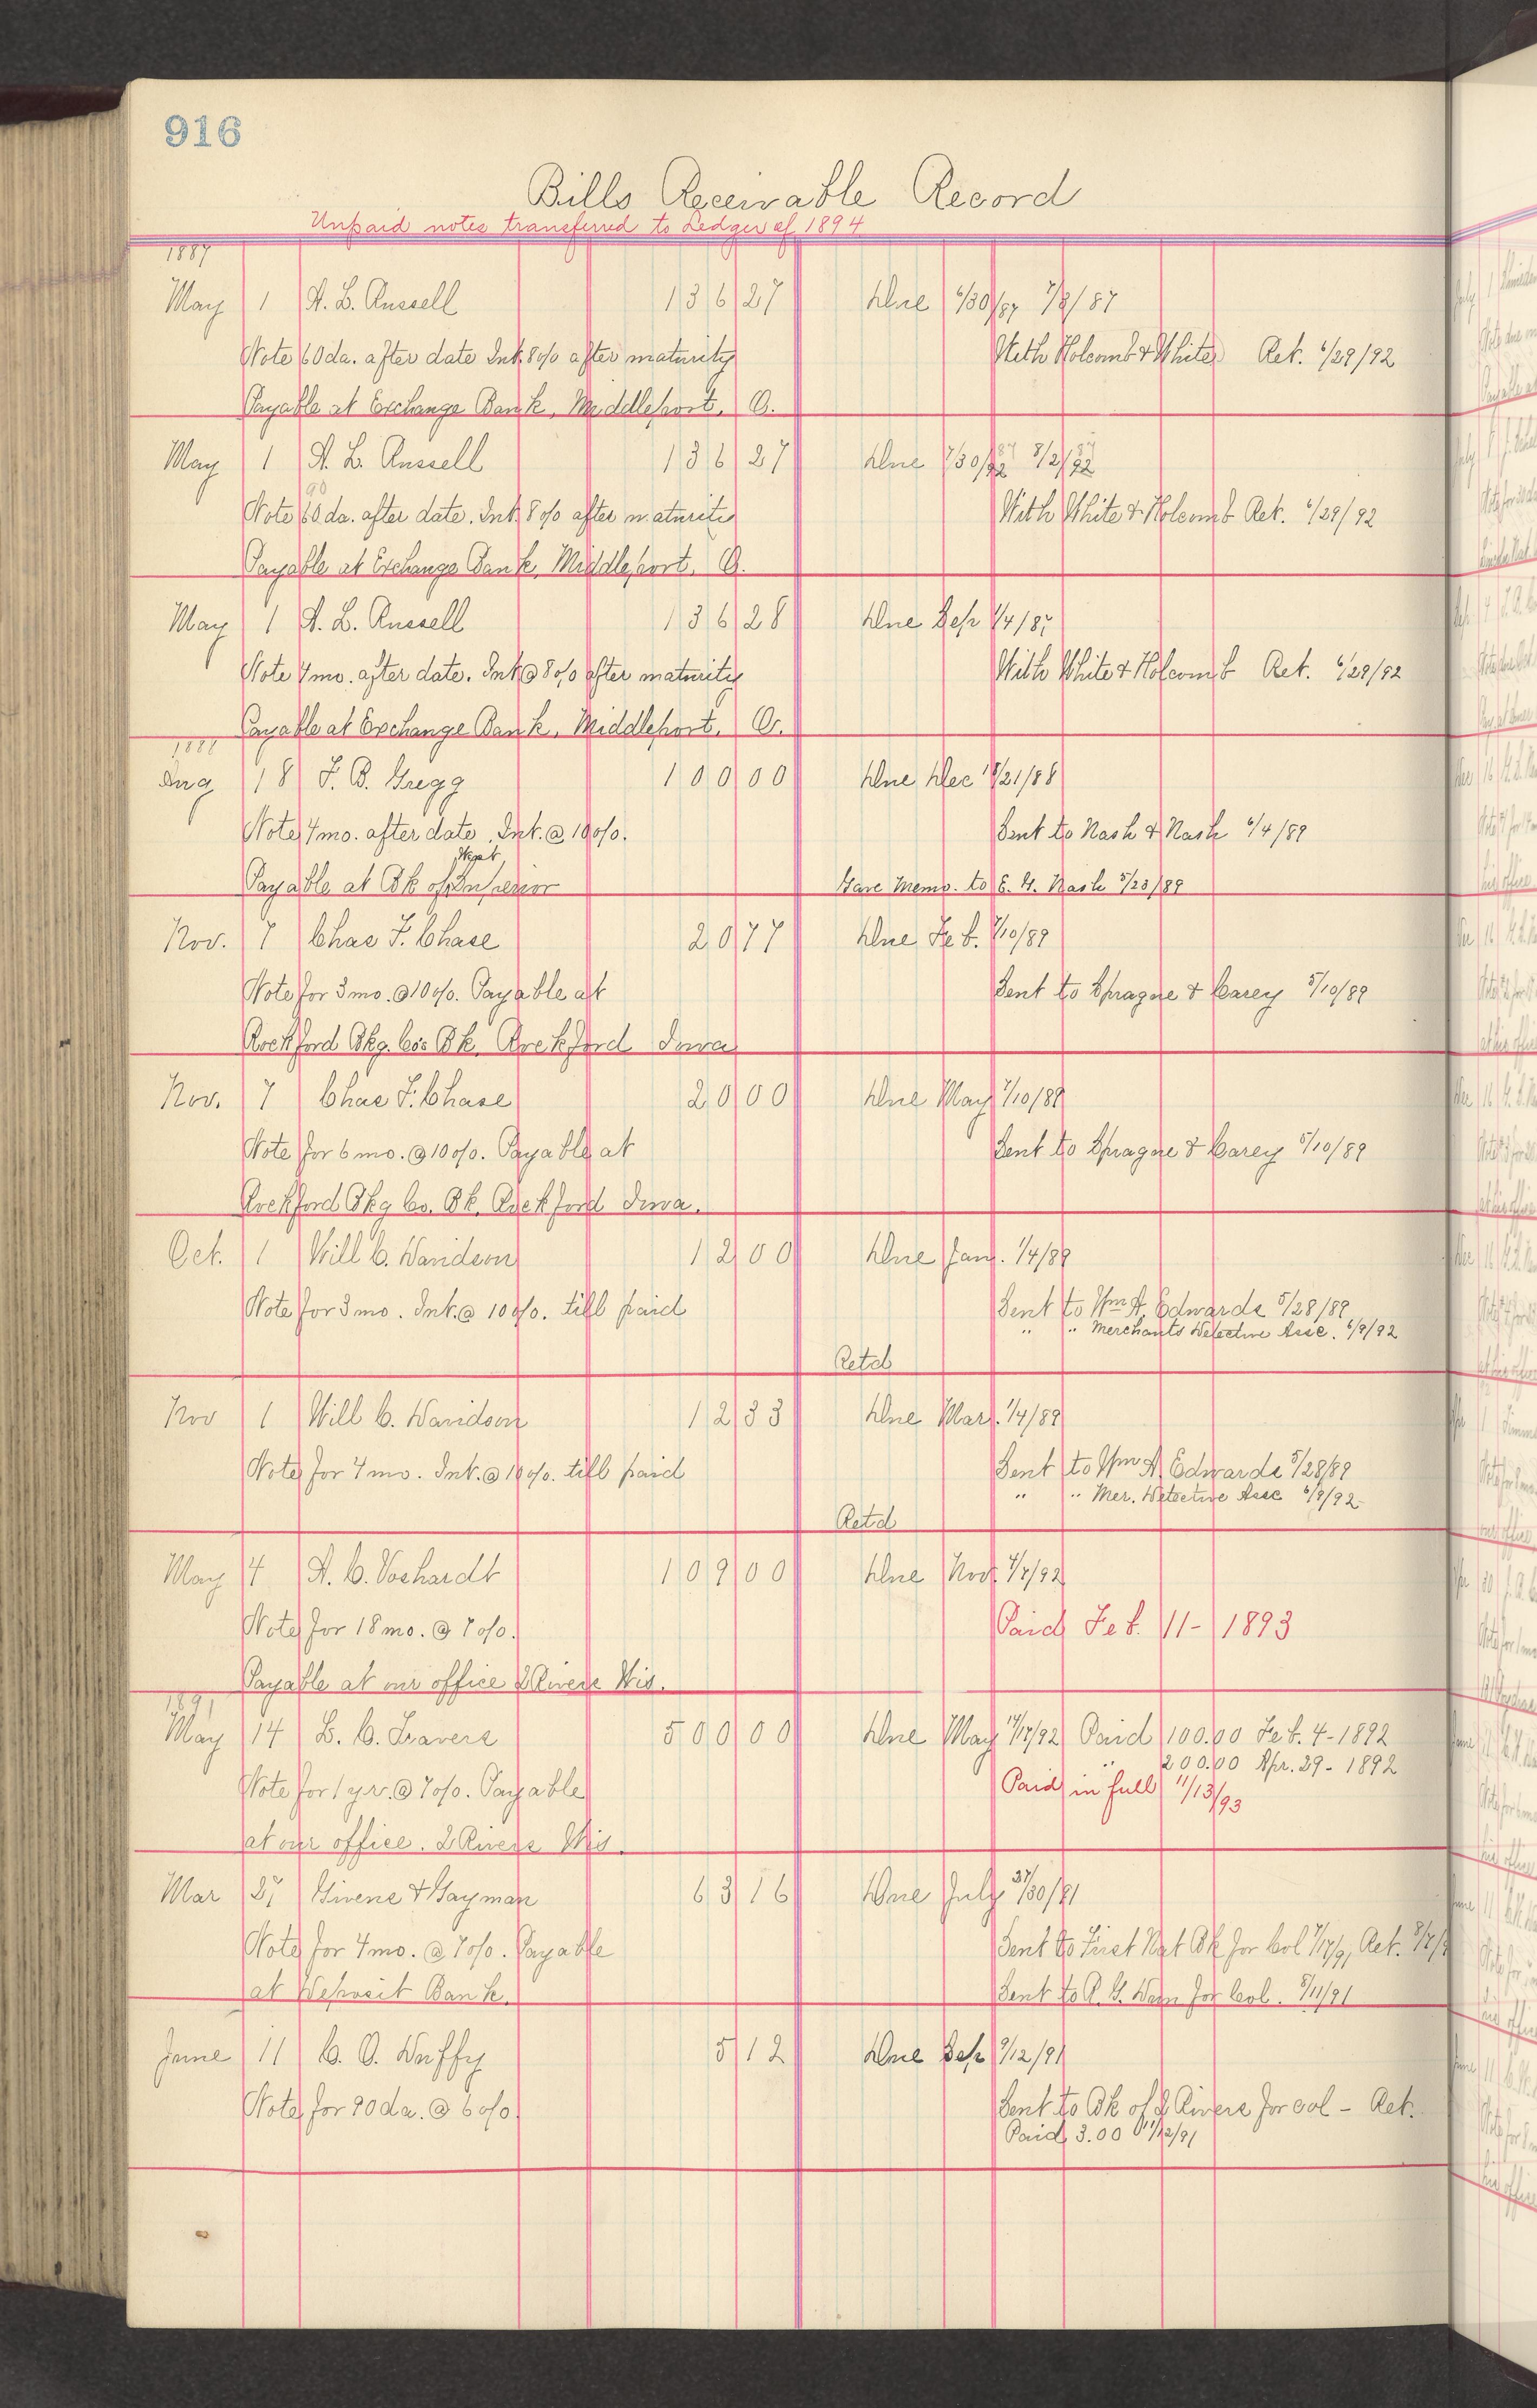 916
Bills Receivable Record
Unpaid notes transferred to Ledger of 1894
1887
May 1 A. L. Russell 136 27 Due 6/30/87 7/3/87
Note 60 da. after date Int. 8% after maturity With Holcomb & White Ret. 6/29/92
Payable at Exchange Bank, Middleport, O.
May 1 A. L. Russell 136 27 Due 7/30/87 8/2/87
90
Note 60 da. after date. Int. 8% after maturity With White & Holcomb Ret. 6/29/92
Payable at Exchange Bank, Middleport, O.
May 1 A. L. Russell 136 28 Due Sep 1/4/87
Note 4 mo. after date. Int @ 8% after maturity With White & Holcomb Ret. 6/29/92
Payable at Exchange Bank, Middleport, O.
1888
Aug 18 F. B. Gregg 100 00 Due Dec 18/21/88
Note 4 mo. after date. Int. @ 10%. Sent to Nash & Nash 6/4/89
West
Payable at Bk of Superior Gave Memo. to E. G. Nash 5/23/89
Nov. 7 Chas F. Chase 20 77 Due Feb. 7/10/89
Note for 3 mo. @ 10%. Payable at Sent to Sprague & Carey 5/10/89
Rockford Bkg. Co's Bk. Rockford Iowa
Nov. 7 Chas F. Chase 20 00 Due May 7/10/89
Note for 6 mo. @ 10%. Payable at Sent to Sprague & Carey 5/10/89
Rockford Bkg Co. Bk. Rockford Iowa.
Oct. 1 Will C. Davidson 12 00 Due Jan. 1/4/89
Note for 3 mo. Int. @ 10%. till paid Sent to Wm A. Edwards 5/28/89
" " Merchants Detective Assc. 6/9/92
Retd
Nov 1 Will C. Davidson 12 33 Due Mar. 1/4/89
Note for 4 mo. Int. @ 10%. till paid Sent to Wm A. Edwards 5/28/89
" " Mer. Detective Assc 6/9/92
Retd
May 4 A. C. Voshardt 109 00 Due Nov. 4/7/92
Note for 18 mo. @ 7%. Paid Feb. 11-1893
Payable at our office 2 Rivers Wis.
1891
May 14 L. C. Travers 500 00 Due May 14/17/92 Paid 100.00 Feb. 4-1892
" 200.00 Apr. 29-1892
Note for 1 yr. @ 7%. Payable Paid in full 11/13/93
at our office. 2 Rivers Wis.
Mar 27 Givens & Gayman 63 16 Due July 27/30/91
Note for 4 mo. @ 7%. Payable Sent to First Nat Bk for Col 7/17/91, Ret.
at Deposit Bank. Sent to R. G. Dun for Col. 8/11/91
June 11 C. O. Duffy 5 12 Due Sep 9/12/91
Note for 90 da. @ 6%. Sent to Bk of 2 Rivers for col - Ret.
Paid 3.00 11/12/91